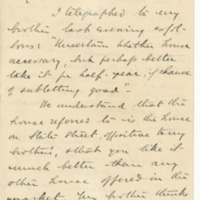 I telegraphed to my
brother last evening as fol-
lows: "Uncertain whether house
necessary, but perhaps better
take it for half-year, if chance
of subletting good".
We understand that the
house referred to is the house
on State Street, opposite to my
brother's, & that you like it
much better than any
other house offered in the
market. My brother thinks